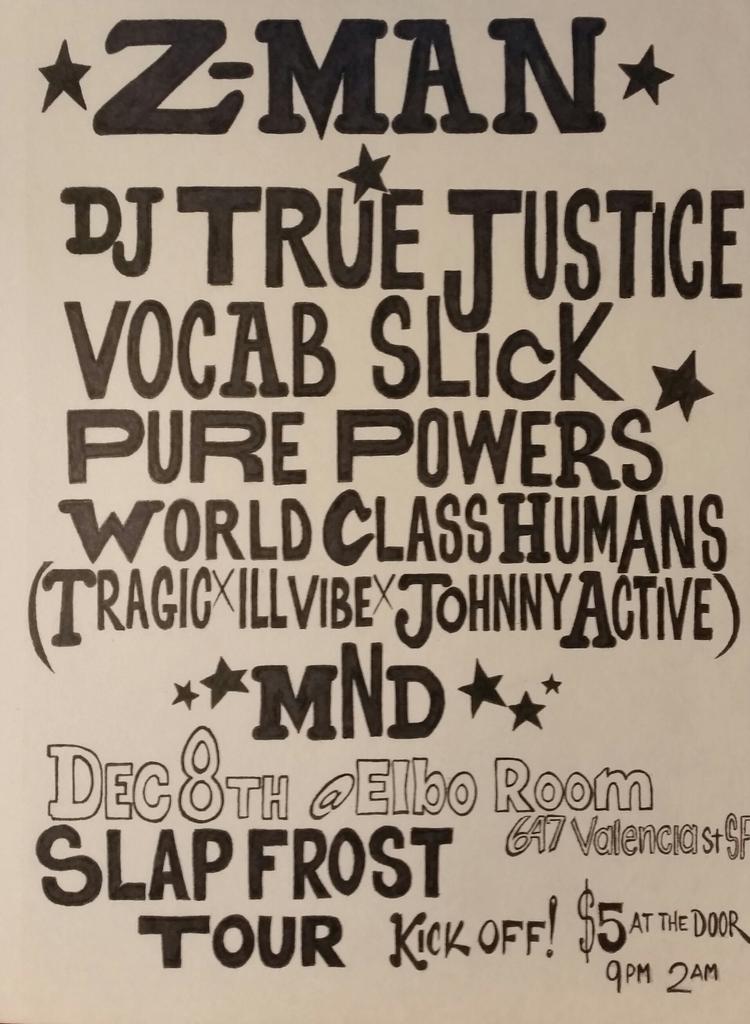 Z-MAN
DJ TRUE JUSTICE
VOCAB SLICK
PURE POWERS
WORLD CLASS HUMANS
(TRAGIC X ILLVIBE X JOHNNY ACTIVE)
MND
DEC 8TH @ Elbo Room
647 Valencia st SF
SLAP FROST
TOUR KICK OFF! $5 AT THE DOOR
9PM 2AM